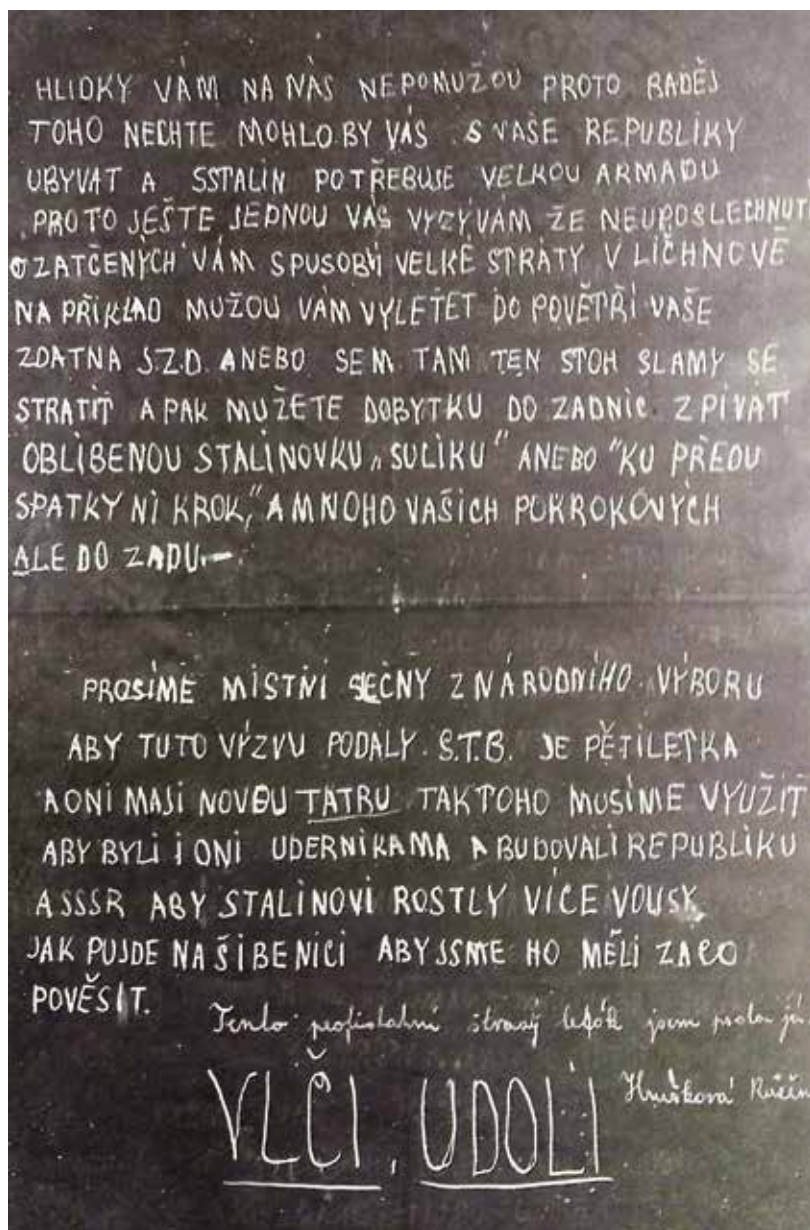 HLIDKY VÁM NA NÁS NEPOMUŽOU PROTO RADĚJ
TOHO NECHTE MOHLO BY VÁS S VAŠE REPUBLIKY
UBYVAT A SSTALIN POTŘEBUJE VELKOU ARMADU
PROTO JEŠTE JEDNOU VÁS VYZÝVÁM ŽE NEUPOSLECHNUT
O ZATČENÝCH VÁM SPUSOBÍ VELKÉ STRÁTY V LÍČHNOVĚ
NA PŘIKLAD MUŽOU VÁM VYLEŤET DO POVĚTŘÍ VAŠE
ZDATNA J.Z.D. ANEBO SEM TAM TEN STOH SLAMY SE
STRATIT A PAK MUŽETE DOBYTKU DO ZADNIC ZPÍVAT
OBLIBENOU STALINOVKU „SULIKU" ANEBO "KU PŘEDU
SPATKY NI KROK," A MNOHO VAŠICH POKROKOVÝCH
ALE DO ZADU.-
PROSÍME MISTŇI SEČNY Z NÁRODNÍHO VÝBORU
ABY TUTO VÝZVU PODALY S.T.B. JE PĚTILETKA
A ONI MAJI NOVOU TATRU TAK TOHO MUSÍME VYUŽÍT
ABY BYLI I ONI UDERNIKAMA A BUDOVALI REPUBLIKU
A SSSR ABY STALINOVI ROSTLY VÍCE VOUSY
JAK PUJDE NA ŠIBENICI ABY JSME HO MĚLI ZA CO
POVĚSIT.
Tento leták jsem
Hrušková
VLČI, UDOLI